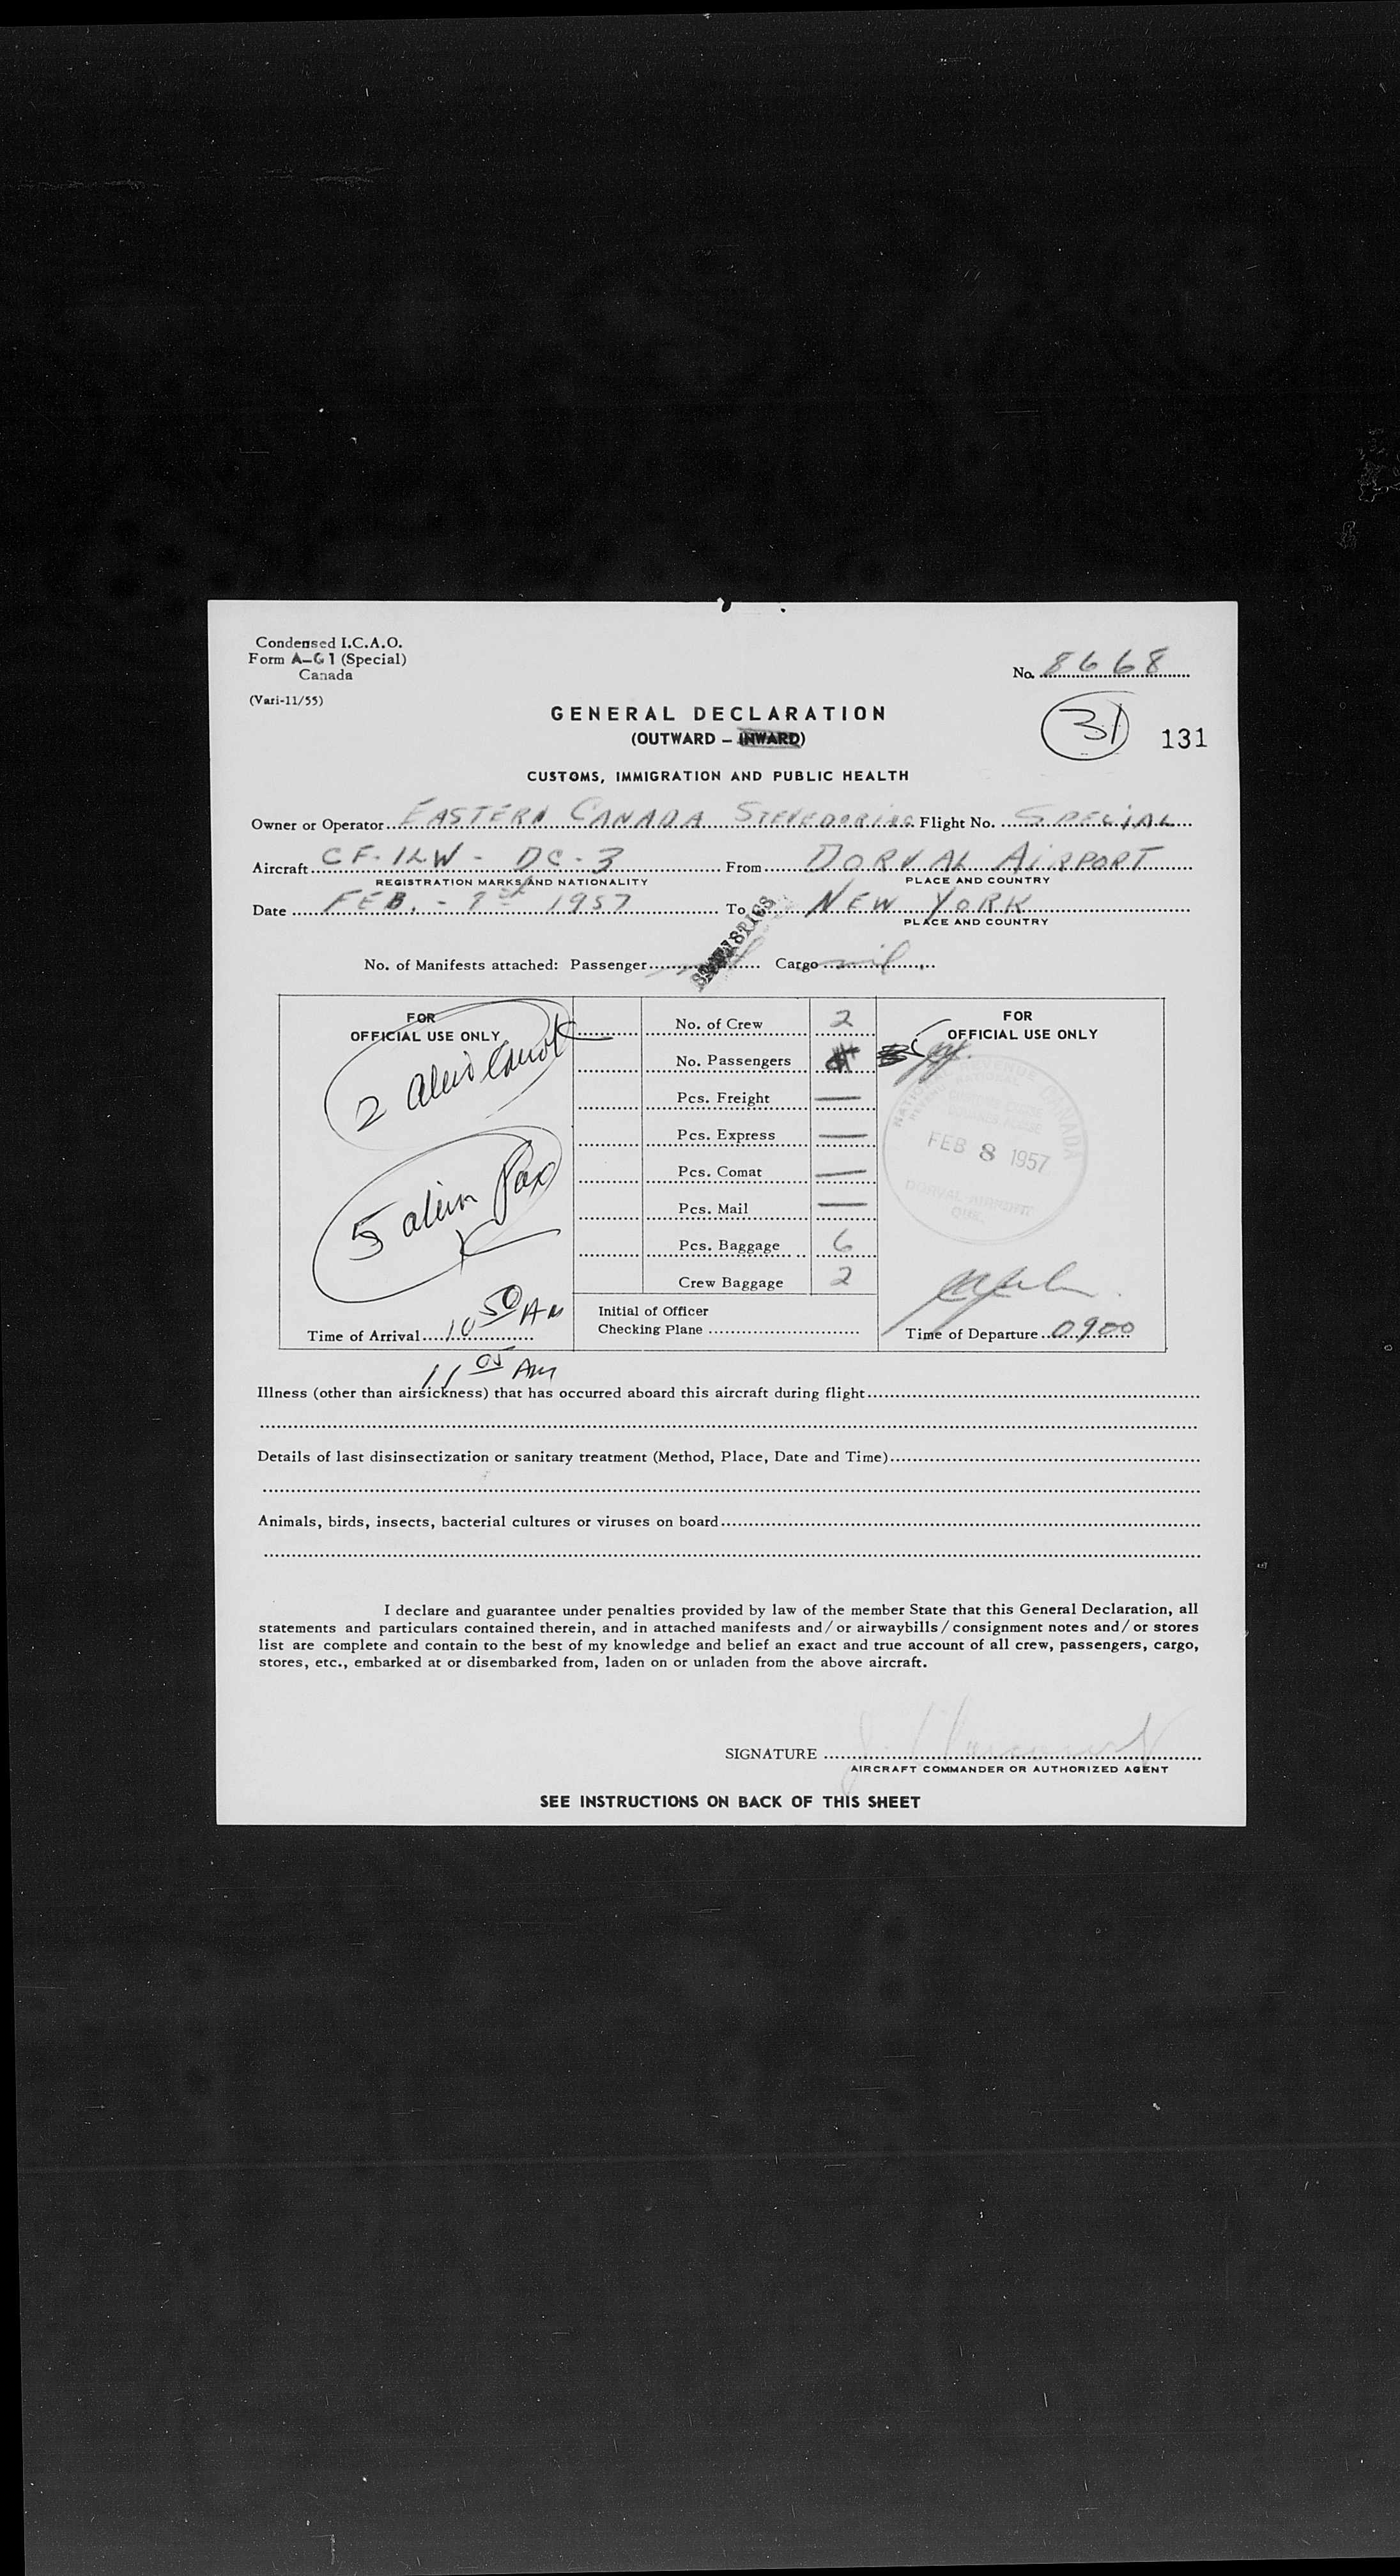 Condensed I.C.A.O.
Form A-G1 (Special)
Canada
(Vari-11/55)
No. 8668
GENERAL DECLARATION
31
(OUTWARD – INWARD)
131
CUSTOMS, IMMIGRATION AND PUBLIC HEALTH
Owner or Operator EASTERN CANADA STEVEDORING Flight No. SPECIAL
Aircraft CF-ILW - DC-3 From DORVAL AIRPORT
REGISTRATION MARKS AND NATIONALITY PLACE AND COUNTRY
Date FEB. - 1957 To NEW YORK
PLACE AND COUNTRY
No. of Manifests attached: Passenger Cargo nil
FOR
OFFICIAL USE ONLY
2 Alien
5 alien Pax
Time of Arrival 10 50 AM
11 05 AM
No. of Crew 2
No. Passengers
Pcs. Freight —
Pcs. Express —
Pcs. Comat —
Pcs. Mail —
Pcs. Baggage 6
Crew Baggage 2
Initial of Officer
Checking Plane
FOR
OFFICIAL USE ONLY
FEB 8 1957
DORVAL AIRPORT
QUE.
Time of Departure 0900
Illness (other than airsickness) that has occurred aboard this aircraft during flight
Details of last disinsectization or sanitary treatment (Method, Place, Date and Time)
Animals, birds, insects, bacterial cultures or viruses on board
I declare and guarantee under penalties provided by law of the member State that this General Declaration, all
statements and particulars contained therein, and in attached manifests and/or airwaybills/consignment notes and/or stores
list are complete and contain to the best of my knowledge and belief an exact and true account of all crew, passengers, cargo,
stores, etc., embarked at or disembarked from, laden on or unladen from the above aircraft.
SIGNATURE
AIRCRAFT COMMANDER OR AUTHORIZED AGENT
SEE INSTRUCTIONS ON BACK OF THIS SHEET